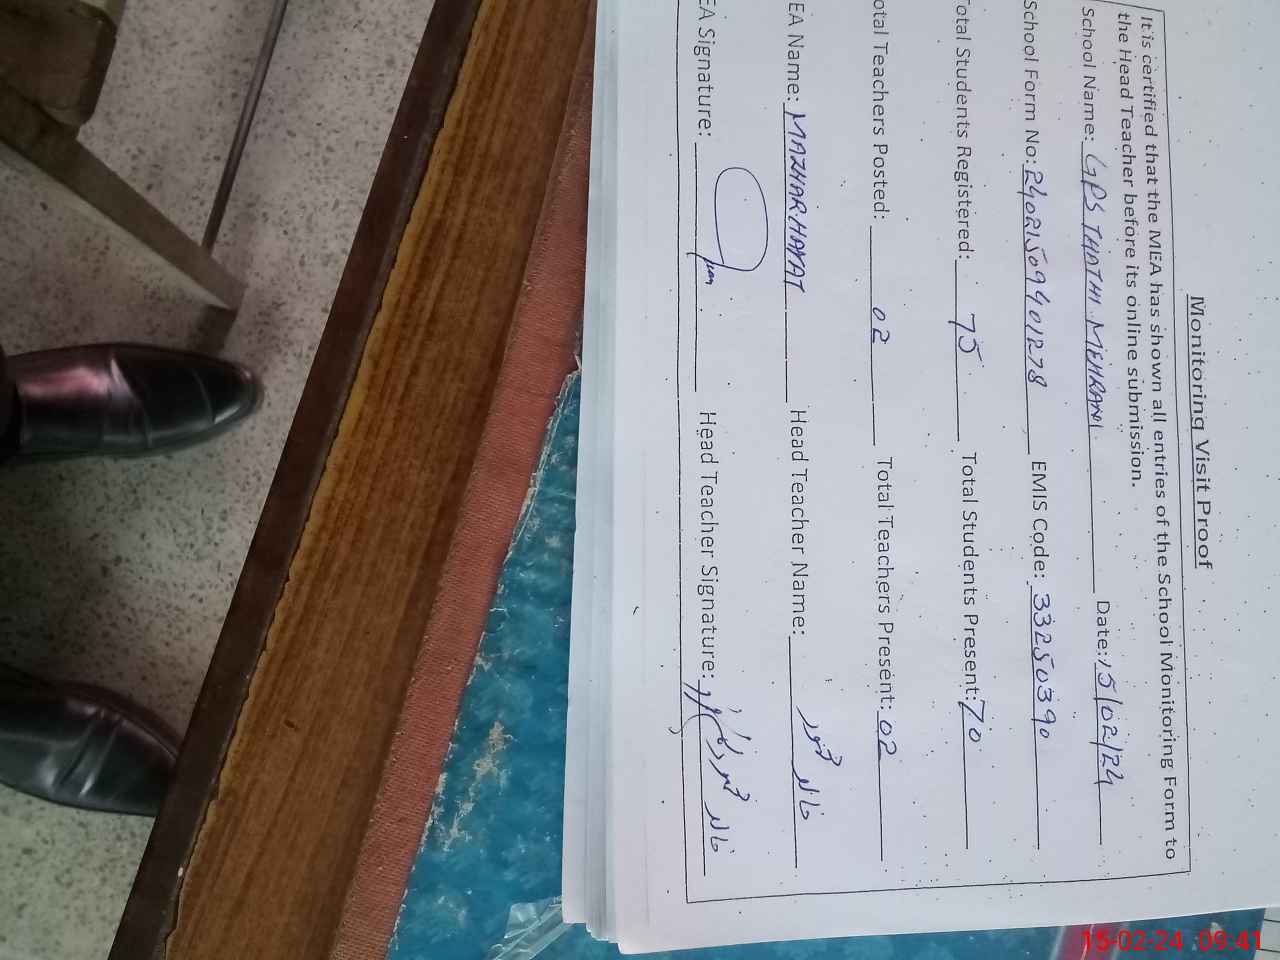 Monitoring Visit Proof
It is certified that the MEA has shown all entries of the School Monitoring Form to
the Head Teacher before its online submission.
School Name: GPS THATHI MEHRANI Date: 15/02/24
School Form No: 24021509401278 EMIS Code: 33250390
otal Students Registered: 75 Total Students Present: 70
otal Teachers Posted: 02 Total Teachers Present: 02
EA Name: MAZHAR HAYAT Head Teacher Name: خالد محمود
EA Signature: Head Teacher Signature: خالد محمود
15-02-24 09:41